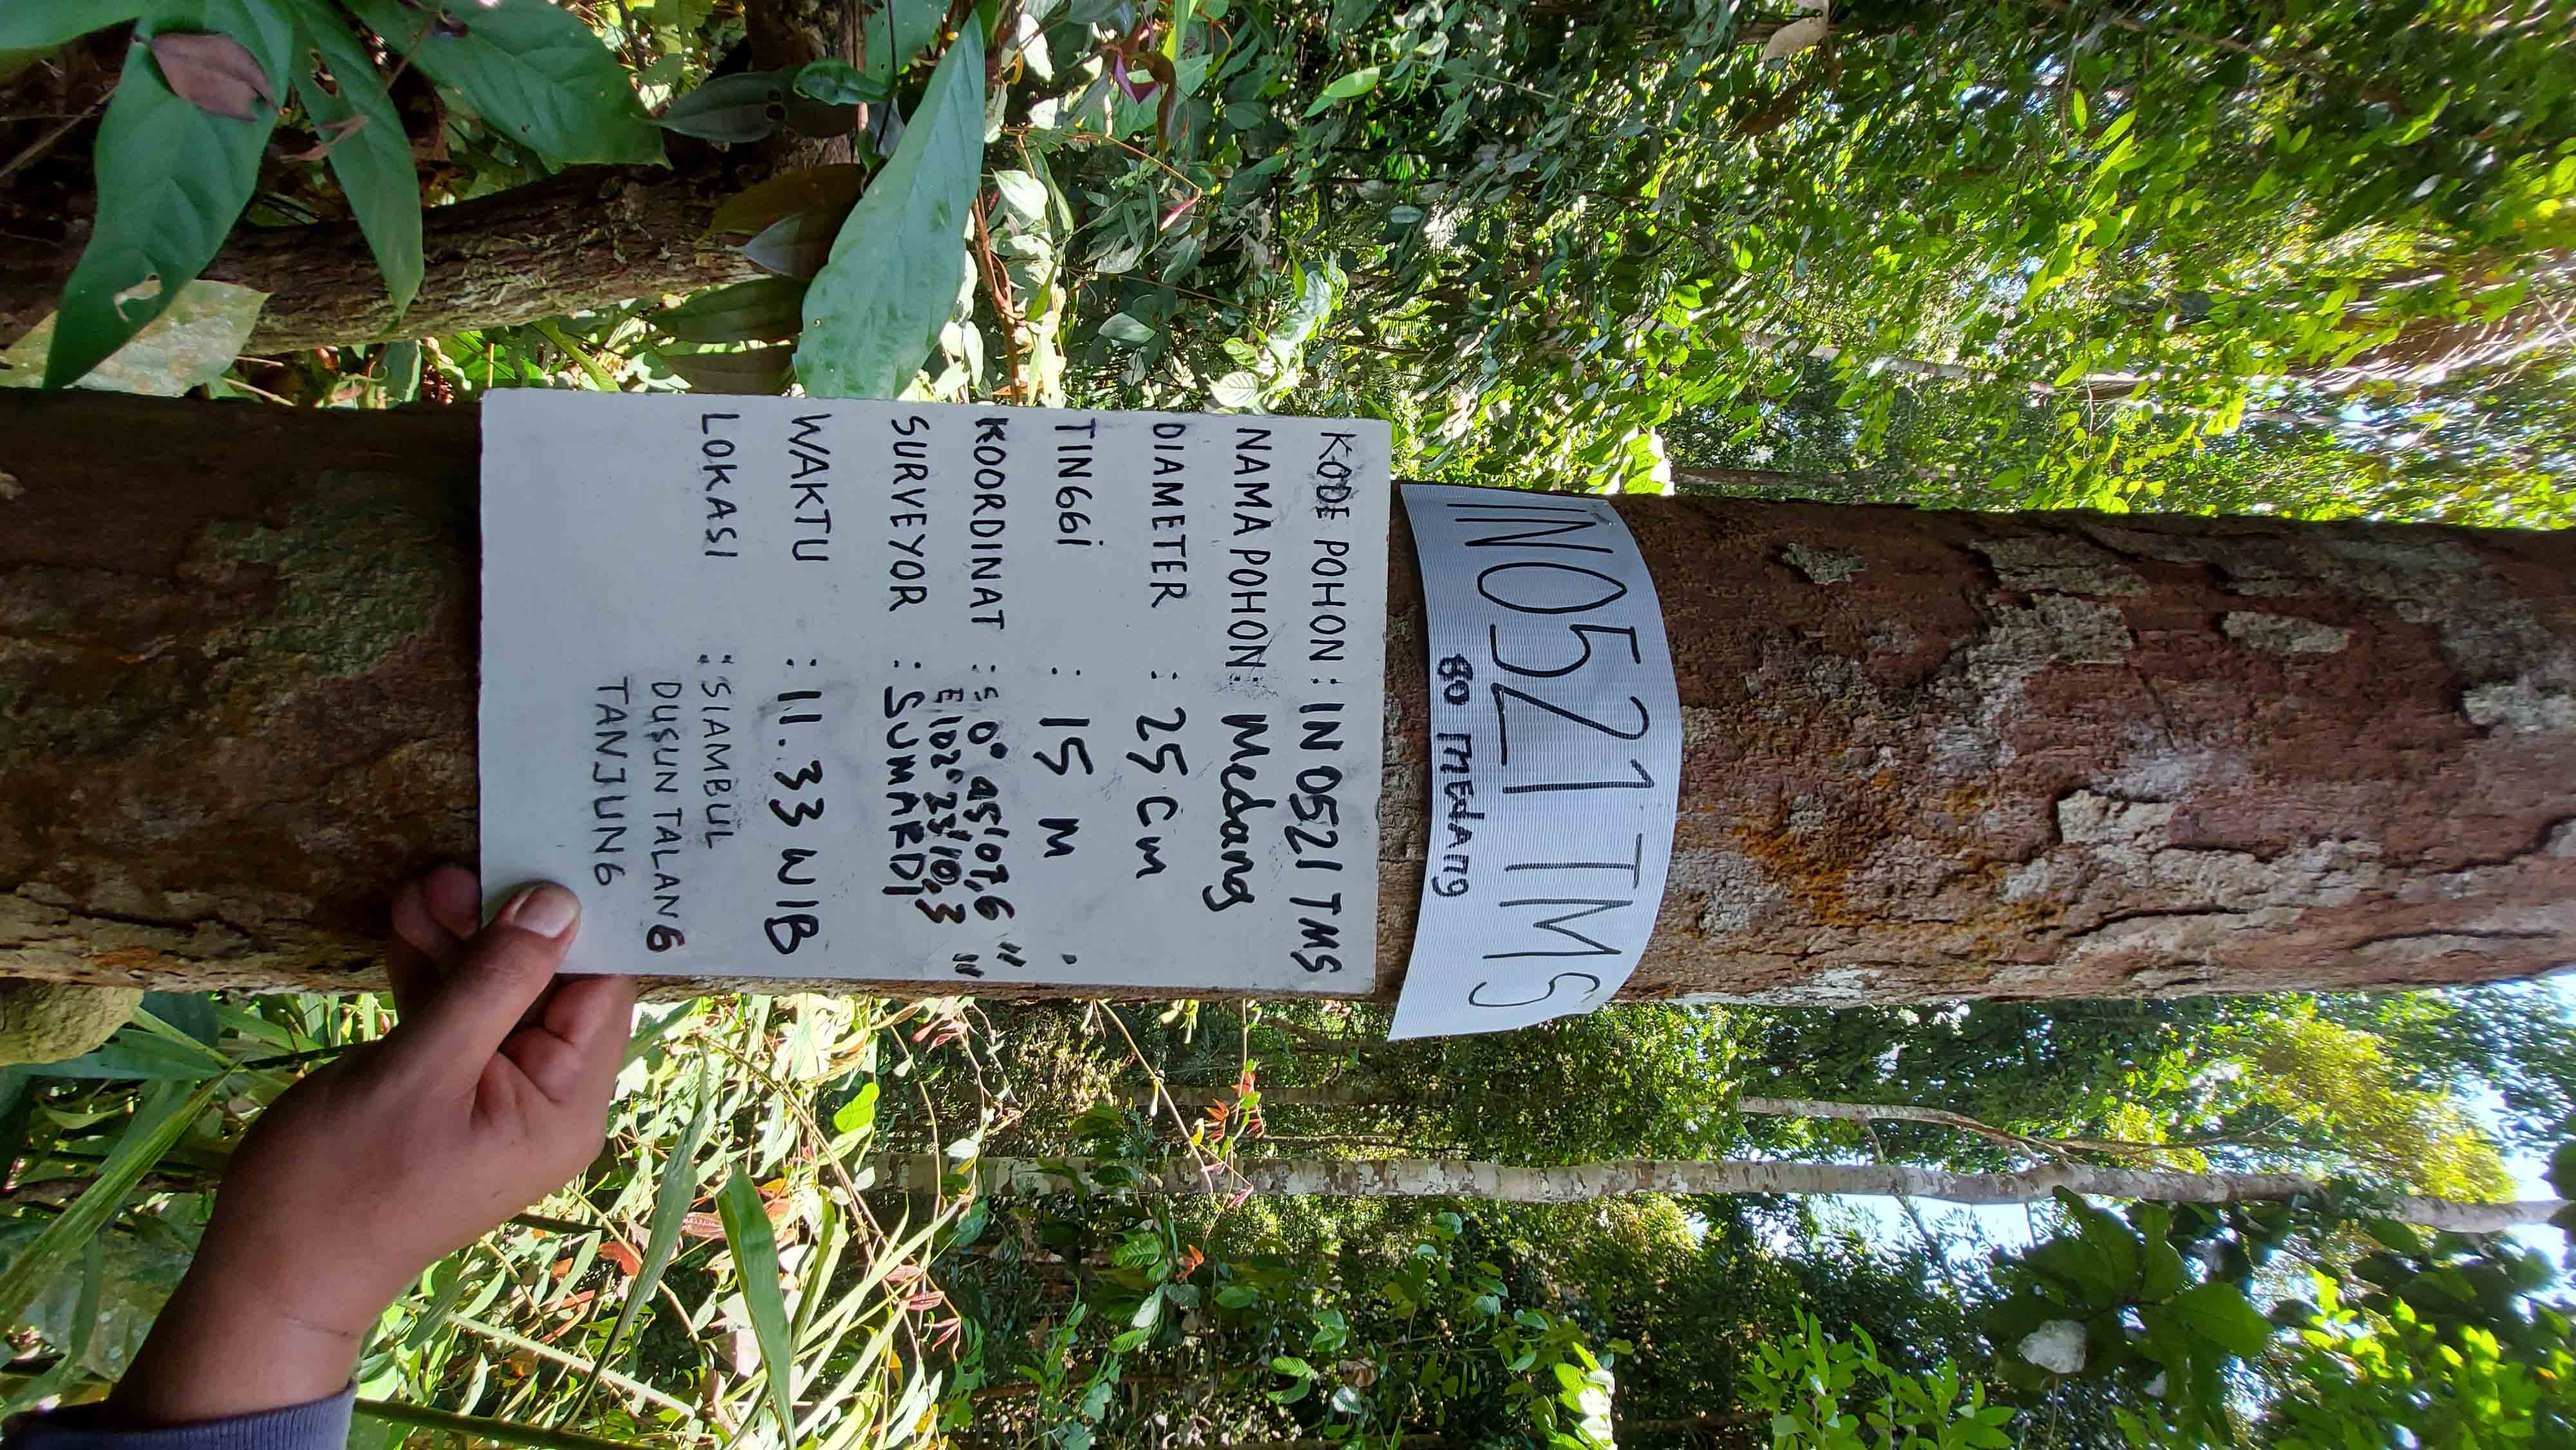 IN0521 TMS
80 MEdANg
KODE POHON : IN 0521 TMS
NAMA POHON : Medang
DIAMETER : 25 Cm
TINGGi : 15 M
KOORDINAT : S 0° 45' 07,6 "
E 102° 23' 10,3 "
SURVEYOR : SUMARDi
WAKTU : 11.33 WIB
LOKASI : SIAMBUL
DUSUN TALANG
TANJUNG